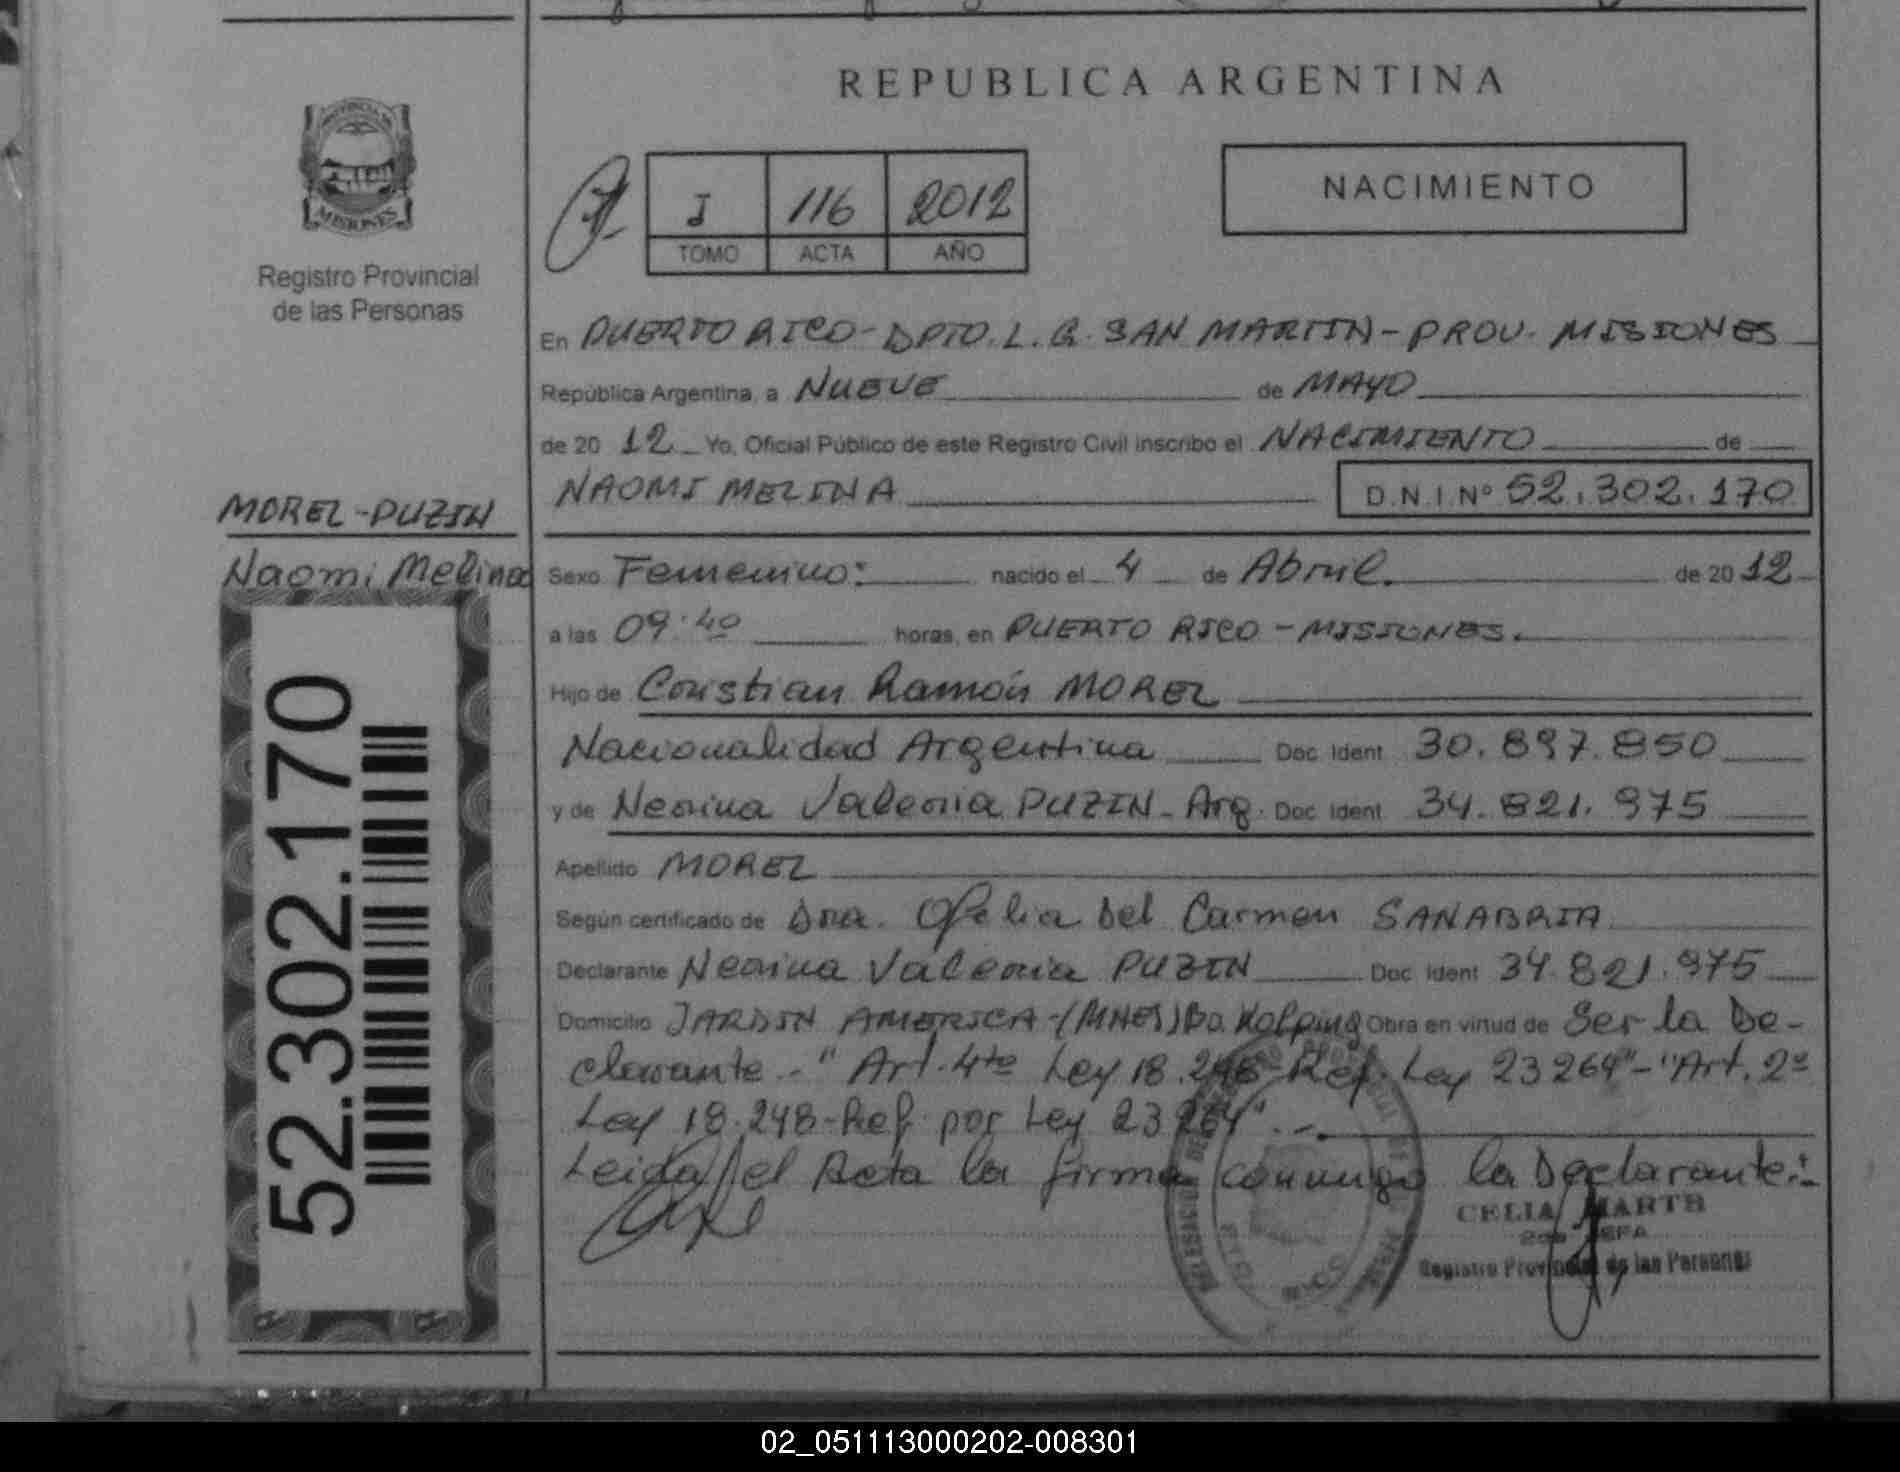 REPUBLICA ARGENTINA
PROVINCIA DE
MISIONES
Registro Provincial
de las Personas
I 116 2012
TOMO ACTA AÑO
NACIMIENTO
En PUERTO RICO - DPTO. L. G. SAN MARTIN - PROV. MISIONES
República Argentina, a NUEVE de MAYO
de 20 12 Yo, Oficial Público de este Registro Civil inscribo el NACIMIENTO de
NAOMI MELINA D.N.I. Nº 52.302.170
MOREL-PUZIN
Naomi Melina
Sexo Femenino: nacido el 4 de Abril. de 20 12
a las 09:40 horas, en PUERTO RICO - MISIONES.
Hijo de Cristian Ramón MOREL
Nacionalidad Argentina Doc. Ident. 30.897.850
y de Nerina Valeria PUZIN - Arg. Doc. Ident. 34.821.975
Apellido MOREL
Según certificado de Dra. Ofelia Del Carmen SANABRIA
Declarante Nerina Valeria PUZIN Doc. Ident. 34.821.975
Domicilio JARDIN AMERICA-(MNES) Bo. Kolping Obra en virtud de Ser la De-
clarante.-"Art. 4to Ley 18.248-Ref. Ley 23264"-"Art. 2º
Ley 18.248-Ref. por Ley 23264".-
Leida el Acta la firma conmigo la Declarante:-
CELIA MARTH
Registro Provincial de las Personas
52.302.170
02_051113000202-008301